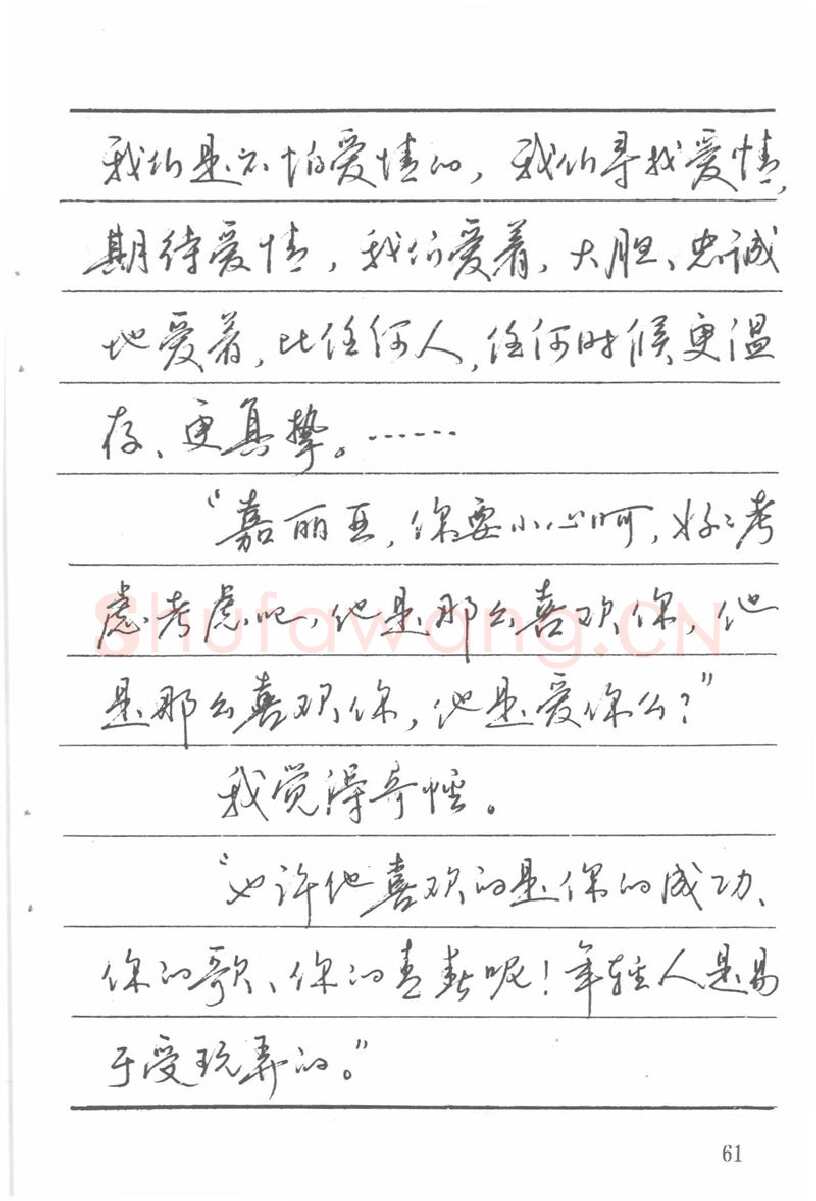 我们是不怕爱情的，我们寻找爱情，
期待爱情，我们爱着，大胆、忠诚
地爱着，比任何人，任何时候更温
存、更真挚。……
“嘉丽亚，你要小心呵，好好考
虑考虑吧，他是那么喜欢你，他
是那么喜欢你，他是爱你么？”
我觉得奇怪。
“也许他喜欢的是你的成功、
你的歌、你的青春呢！年轻人是易
于受玩弄的。”
Shufawang.CN
61